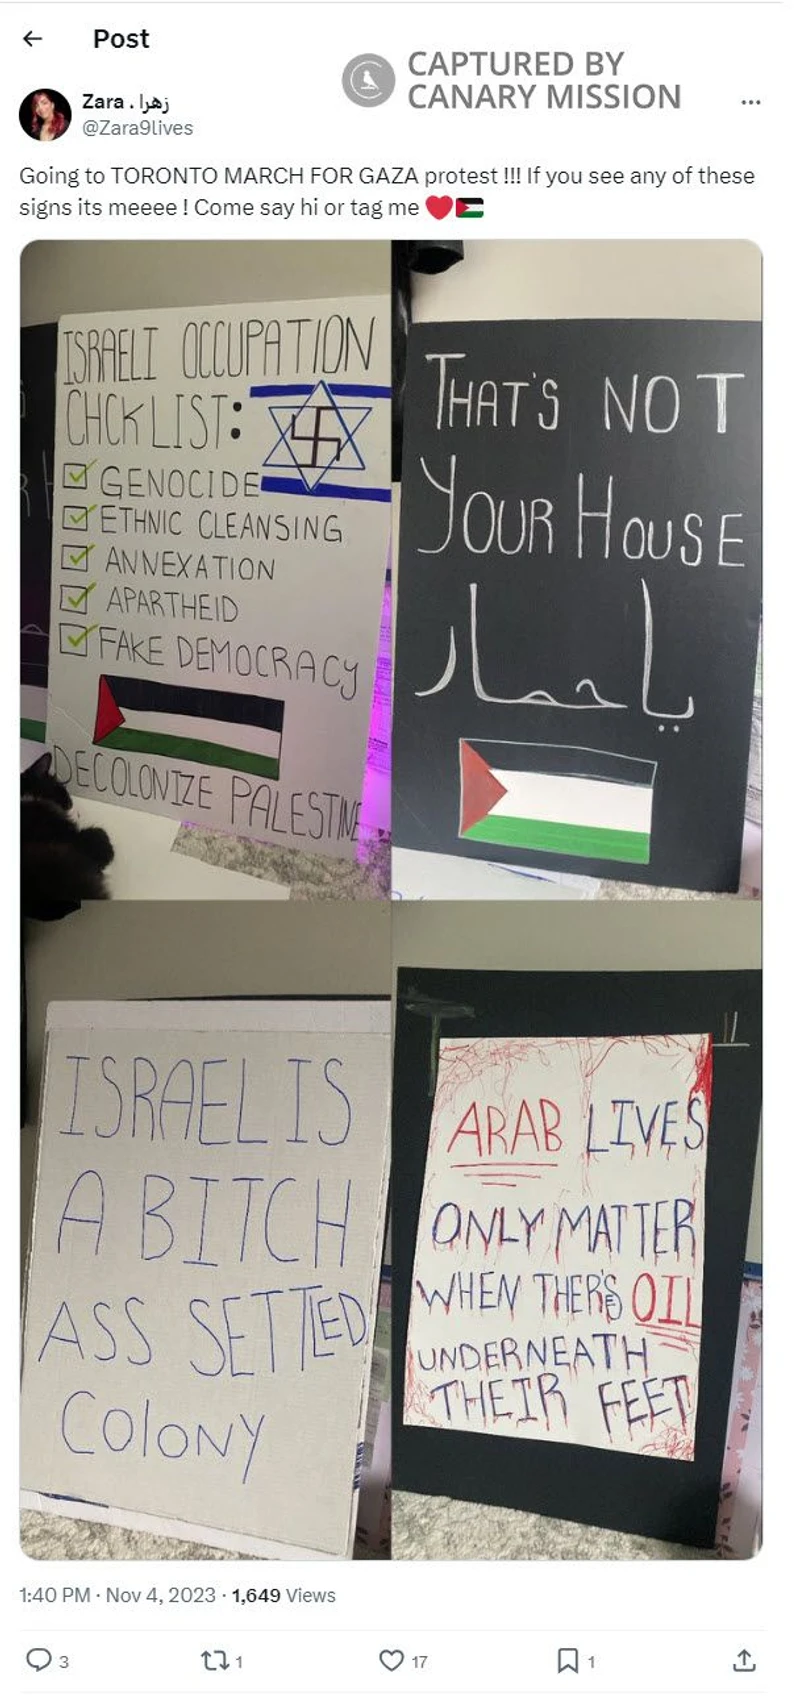 Post
CAPTURED BY
CANARY MISSION
Zara . زهرا
@Zara9lives
Going to TORONTO MARCH FOR GAZA protest !!! If you see any of these
signs its meeee ! Come say hi or tag me ❤️🇵🇸
ISRAELI OCCUPATION
CHCKLIST:
GENOCIDE
ETHNIC CLEANSING
ANNEXATION
APARTHEID
FAKE DEMOCRACY
DECOLONIZE PALESTINE
THAT'S NOT
YOUR HOUSE
يا حمار
ISRAEL IS
A BITCH
ASS SETTLED
COlONY
ARAB LIVES
ONLY MATTER
WHEN THER'S OIL
UNDERNEATH
THEIR FEET
1:40 PM · Nov 4, 2023 · 1,649 Views
3 1 17 1